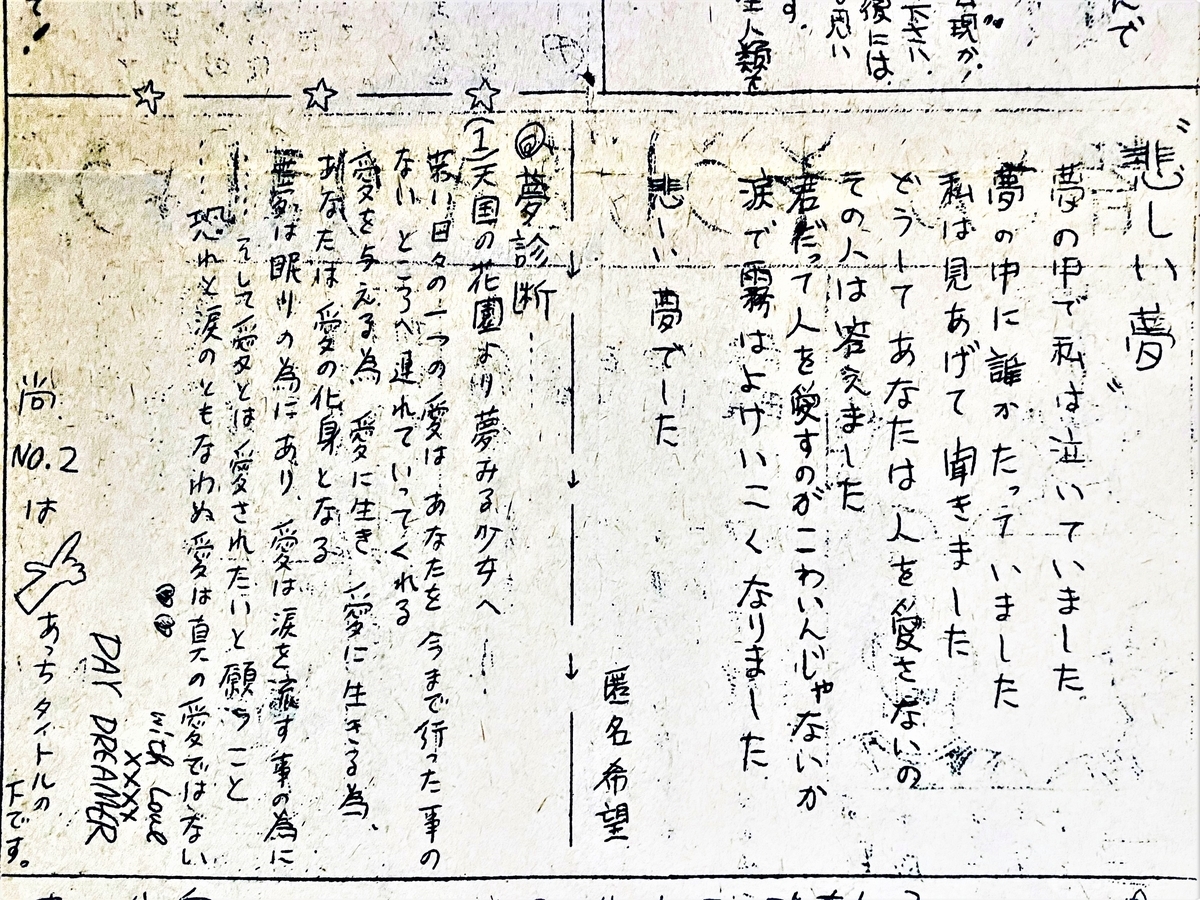 んで
出現か!
下さい。
後には
思い
す。
人類を
て!
〝悲しい夢〟
夢の中で私は泣いていました
夢の中に誰かたっていました
私は見あげて聞きました
どうしてあなたは人を愛さないの
その人は答えました
君だって人を愛すのがこわいんじゃないか
涙で霧はよけいこくなりました
悲しい夢でした
匿名希望
◎夢診断……
(1)天国の花園より夢みる少女へ……
若い日々の一つの愛は あなたを 今まで行った事の
ない ところへ連れていってくれる
愛を与える為 愛に生き、愛に生きる為、
あなたは 愛の化身となる
は眠りの為にあり、愛は涙を流す事の為に
……そして愛とは愛されたいと願うこと
……恐れと涙のともなわぬ愛は真の愛ではない
with Love
xxxx
DAY DREAMER
尚 NO.2 は あっちタイトルの
下です。